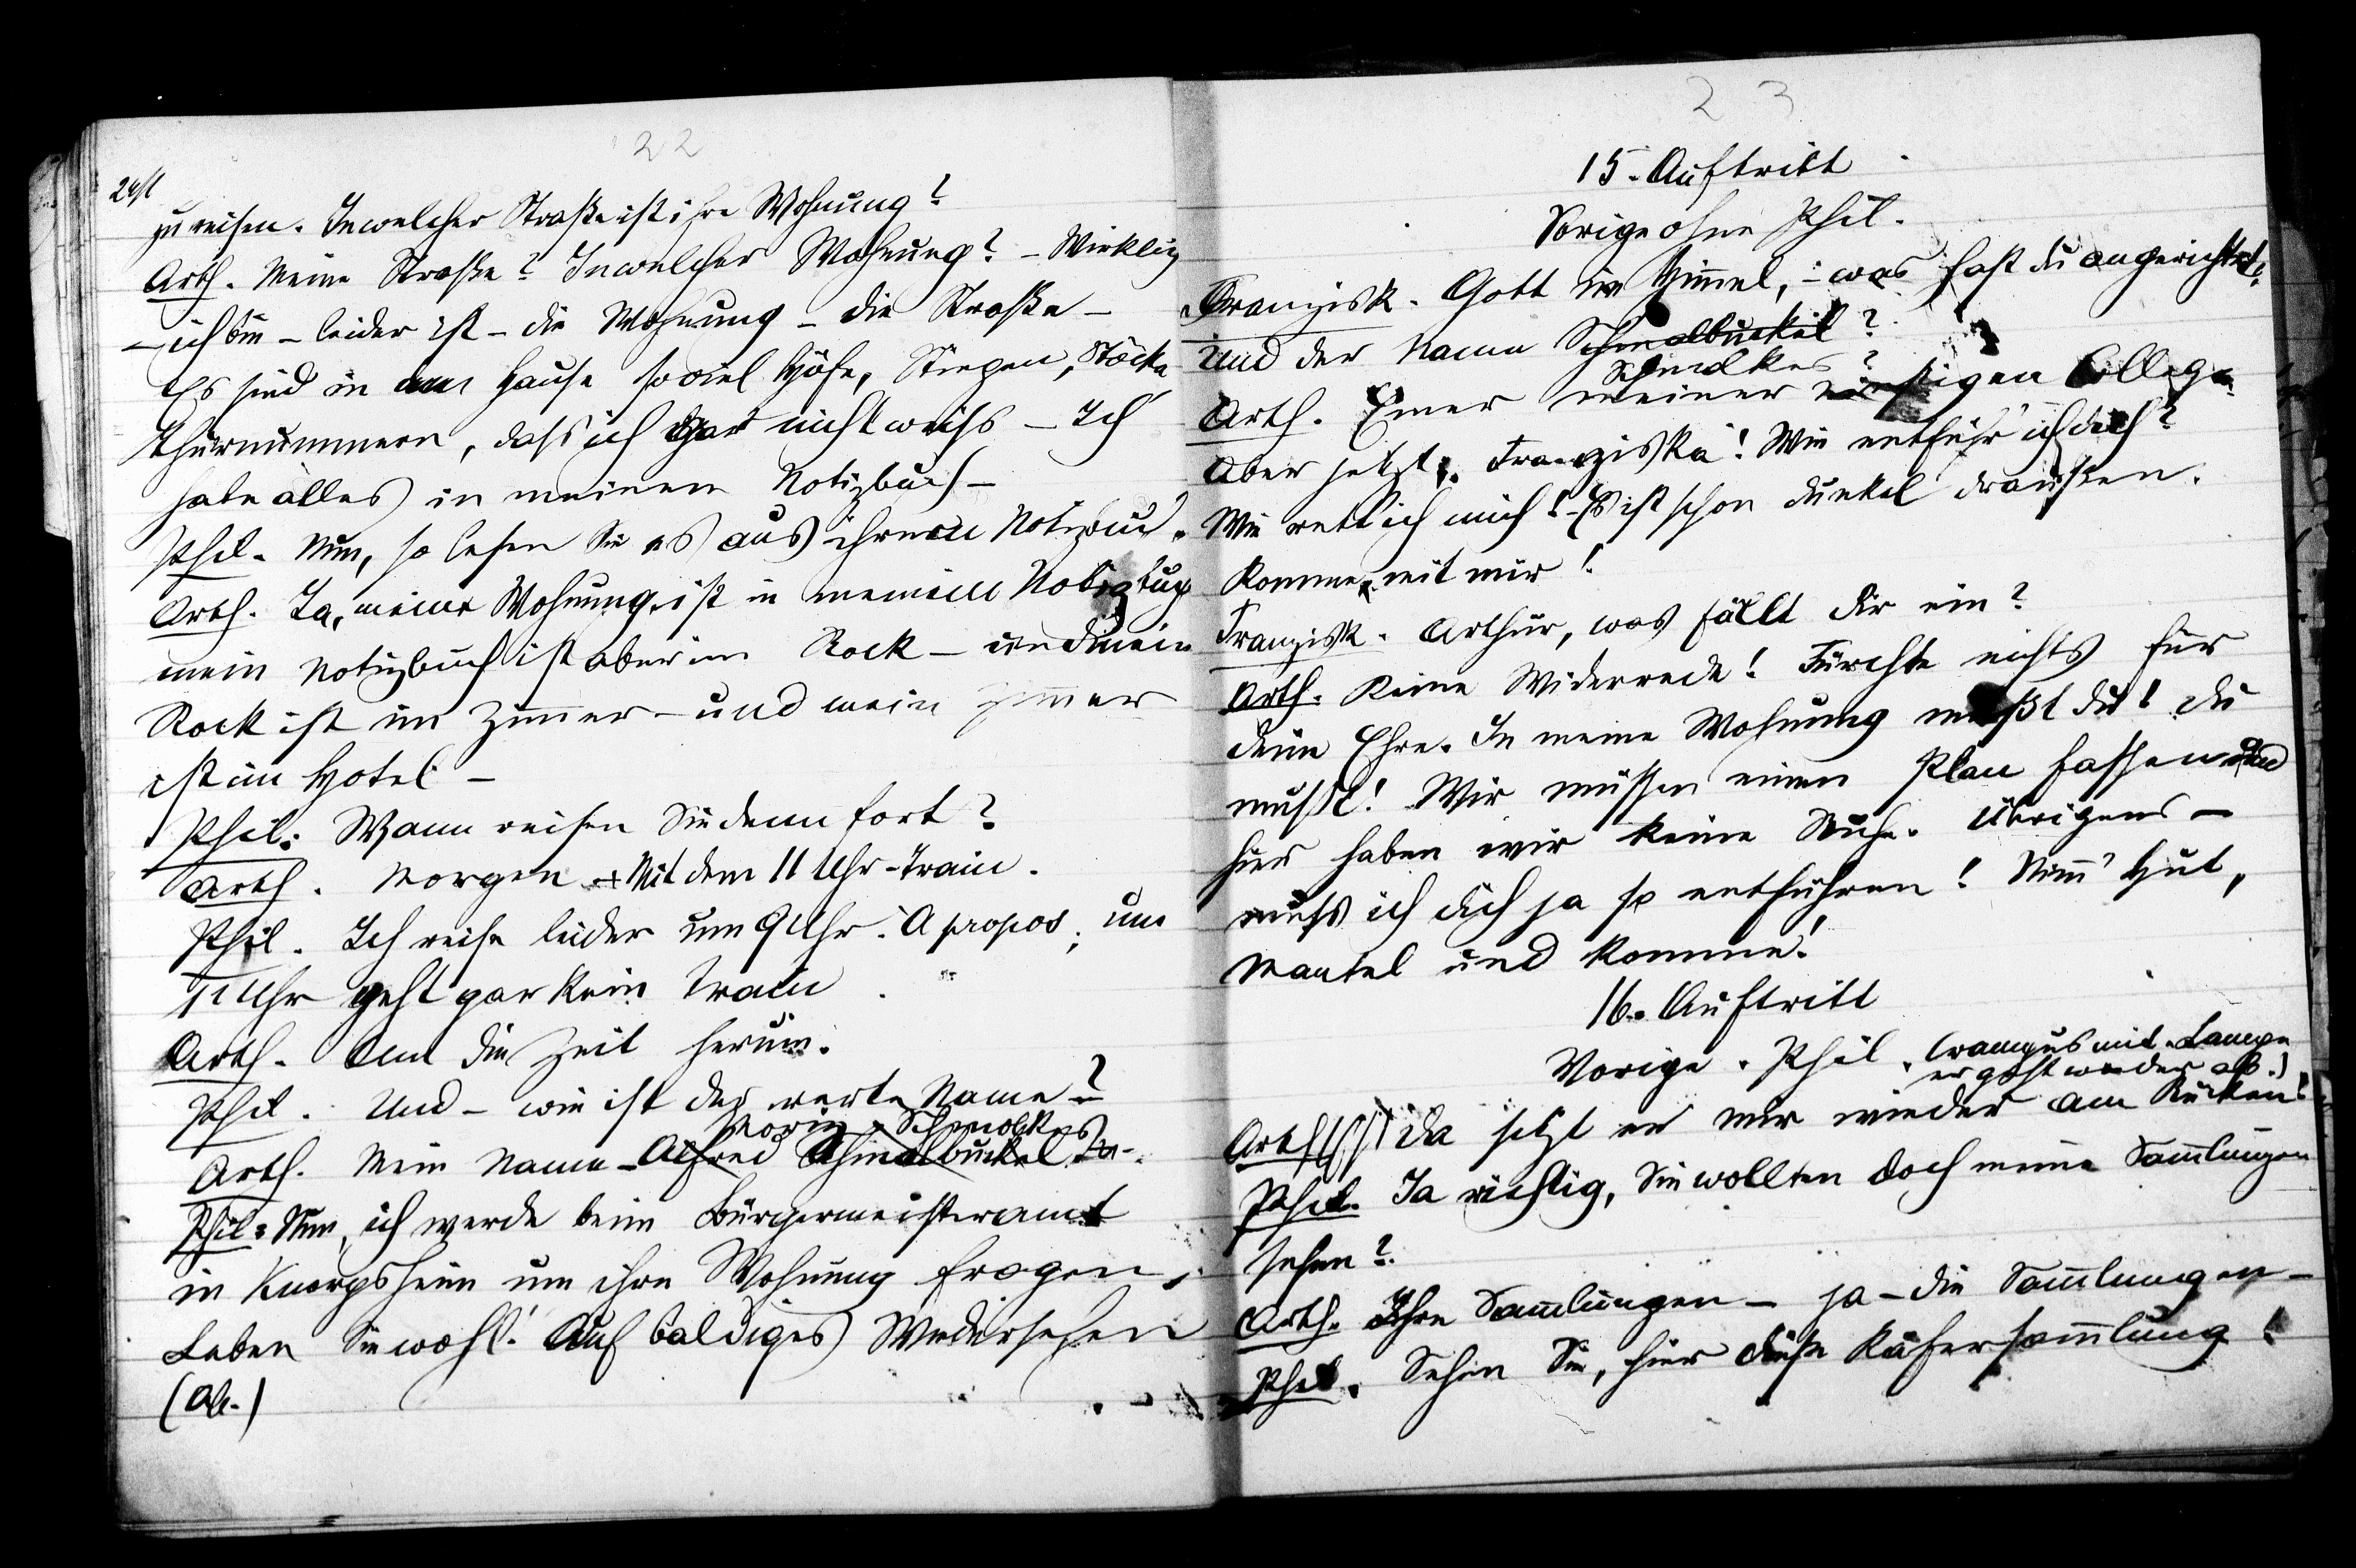 22
zu reisen. In welcher Straße ist ihre Wohnung?
Arth. Meine Straße? In welcher Wohnung? – Wirklich
– ich bin – leider ist – die Wohnung – die Straße –
Es sind in dem Hause soviel Höfe, Stiegen, Stöcke
Thürnummern, dass ich gar nicht weiss – Ich
habe alles in meinem Notizbuch –
Phil. Nun, so lesen Sie es aus ihrem Notizbuch.
Arth. Ja, meine Wohnung ist in meinem Notizbuch
mein Notizbuch ist aber im Rock – und mein
Rock ist im Zimmer – und mein Zimmer
ist im Hotel –
Phil. Wann reisen Sie denn fort?
Arth. Morgen – Mit dem 11 Uhr-Train.
Phil. Ich reise leider um 9 Uhr. A propos, um
11 Uhr geht gar kein Train.
Arth. Um die Zeit herum.
Phil. Und – wie ist der werte Name –?
Moriz Schmolkes
Arth. Mein Name – Alfred Schmalbuckel
Phil. Nun, ich werde beim Bürgermeisteramt
in Knorgsheim um ihre Wohnung fragen,
Leben Sie wohl! Auf baldiges Wiedersehen
(Ab.)
23
15. Auftritt
Vorige ohne Phil.
Franzisk. Gott im Himmel, – was hast du angerichtet?
Und der Name Schmalbuckel?
Schmolkes?
Arth. Einer meiner Collegen
Aber jetzt, Franziska! Wie entführ' ich dich?
Wie rett ich mich! – Es ist schon dunkel draußen.
Komme mit mir!
Franzisk. Arthur, was fällt dir ein?
Arth. Keine Widerrede! Fürchte nichts für
deine Ehre. In meine Wohnung mußt du! du
mußt! Wir müssen einen Plan fassen und
hier haben wir keine Ruhe. Übrigens –
muss ich dich ja so entführen! Nimm' Hut,
Mantel und komme!
16. Auftritt
Vorige. Phil. (Crampus mit Lampe
er geht wieder ab.)
Arth. Da sitzt er mir wieder am Rücken!
Phil. Ja richtig, Sie wollten doch meine Sammlungen
sehen?
Arth. Ihre Sammlungen – ja – die Sammlungen –
Phil. Sehen Sie, hier diese Käfersammlung!